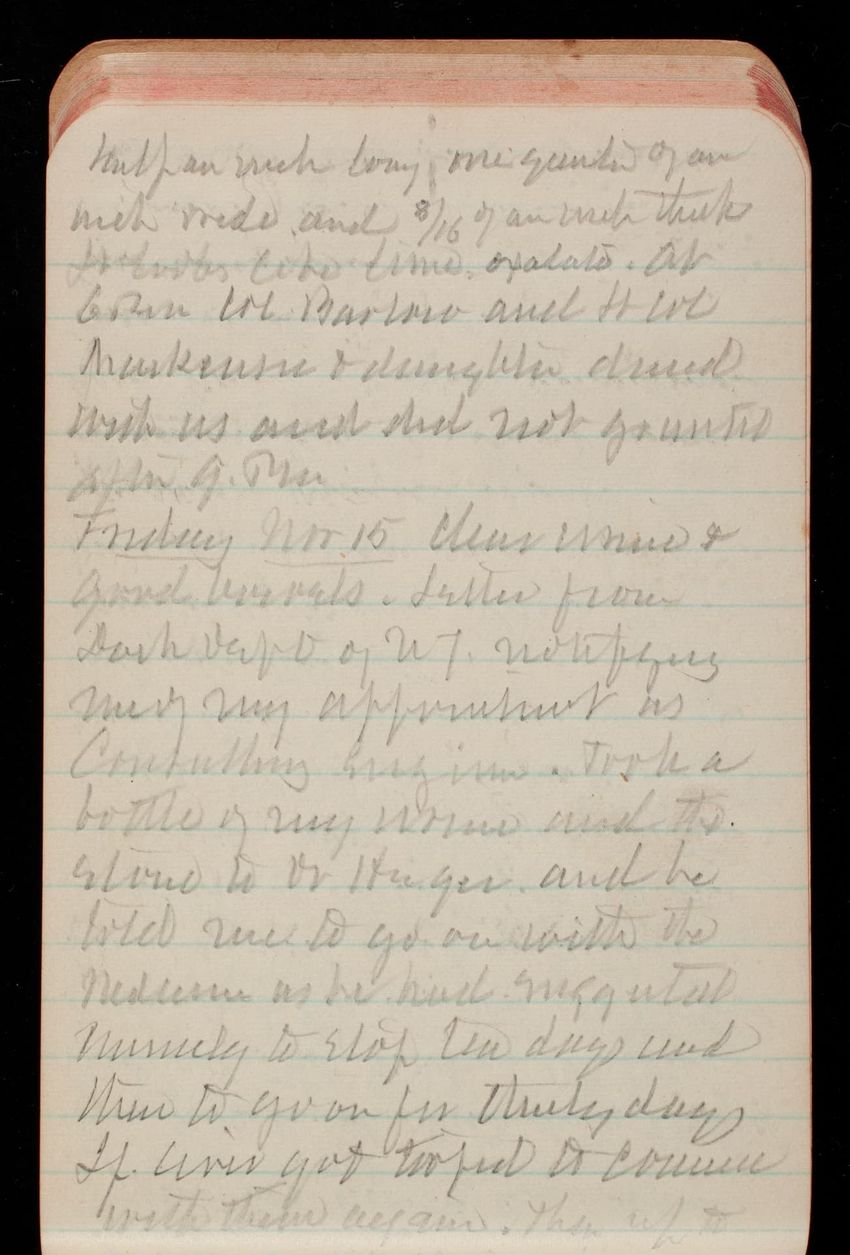 half an inch long, one quarter of an
inch wide and 3/16 of an inch thick
It looks like lime oxalate. At
6 P.m Col Barlow and Lt Col
Mackenzie & daughter dined
with us and did not go until
after 9. P.m
Friday Nov 15 Clear urine &
good bowels. Letter from
Dock Dept of N Y. notifying
me of my appointment as
Consulting Engineer. Took a
bottle of my urine and the
stone to Dr and he
told me to go on with the
medicine as he had suggested
namely to stop ten days and
then to go on for thirty days
If liver got torpid to commence
with them again. Then up to